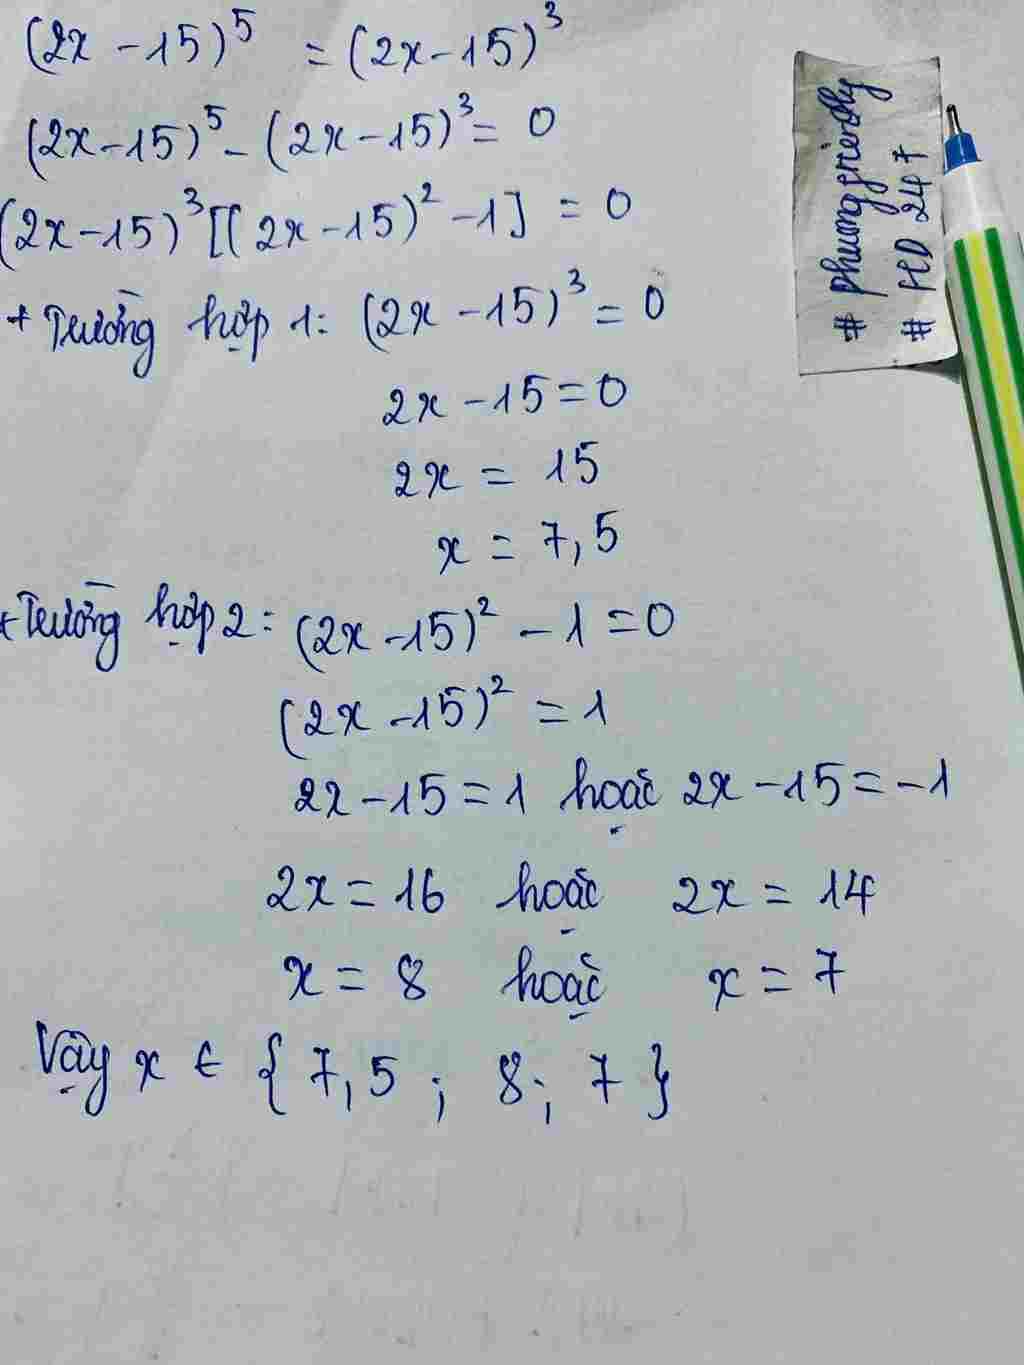 (2x - 15)⁵ = (2x - 15)³
(2x - 15)⁵ - (2x - 15)³ = 0
(2x - 15)³ [(2x - 15)² - 1] = 0
+ Trường hợp 1: (2x - 15)³ = 0
2x - 15 = 0
2x = 15
x = 7,5
+ Trường hợp 2: (2x - 15)² - 1 = 0
(2x - 15)² = 1
2x - 15 = 1 hoặc 2x - 15 = -1
2x = 16 hoặc 2x = 14
x = 8 hoặc x = 7
Vậy x ∈ {7,5 ; 8; 7}
# HD 247